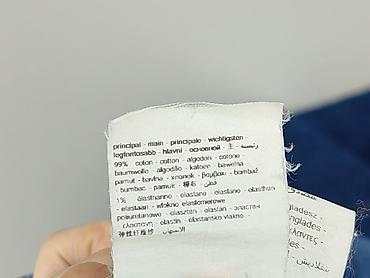 principal - main - principale - wichtigsten -
legfontosabb - hlavní - основной - 主 - رئيسية
99% coton - cotton - algodon - cotone -
baumwolle - algodão - katoen - bawełna -
pamut - bavlna - хлопок - βαμβακι - bambaž
- bumbac - pamuk - 棉布 - قطن
1% élasthanne - elastano - elastan - elasthan
- elastaan - włókno elastomerowe
poliuretanowe - elasztan - elastan - эластан
- ελαστανη - elastin - elastansko vlakno -
弹性纤维纱
glades -
nglades -
ΚΛΟΝΤΕΣ -
بنغلاديش